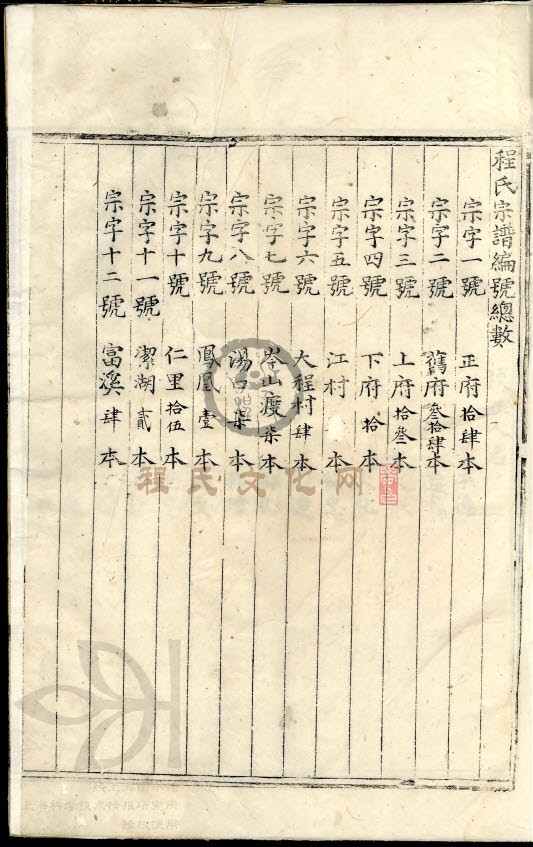 程氏宗譜編號總數
宗字一號 正府拾肆本
宗字二號 舊府叄拾肆本
宗字三號 上府拾叄本
宗字四號 下府拾本
宗字五號 江村 本
宗字六號 大程村肆本
宗字七號 岑山渡柒本
宗字八號 湯口柒本
宗字九號 鳳凰壹本
宗字十號 仁里拾伍本
宗字十一號 潔湖貳本
宗字十二號 富溪肆本
程氏文化网
上海科学技术情报研究所